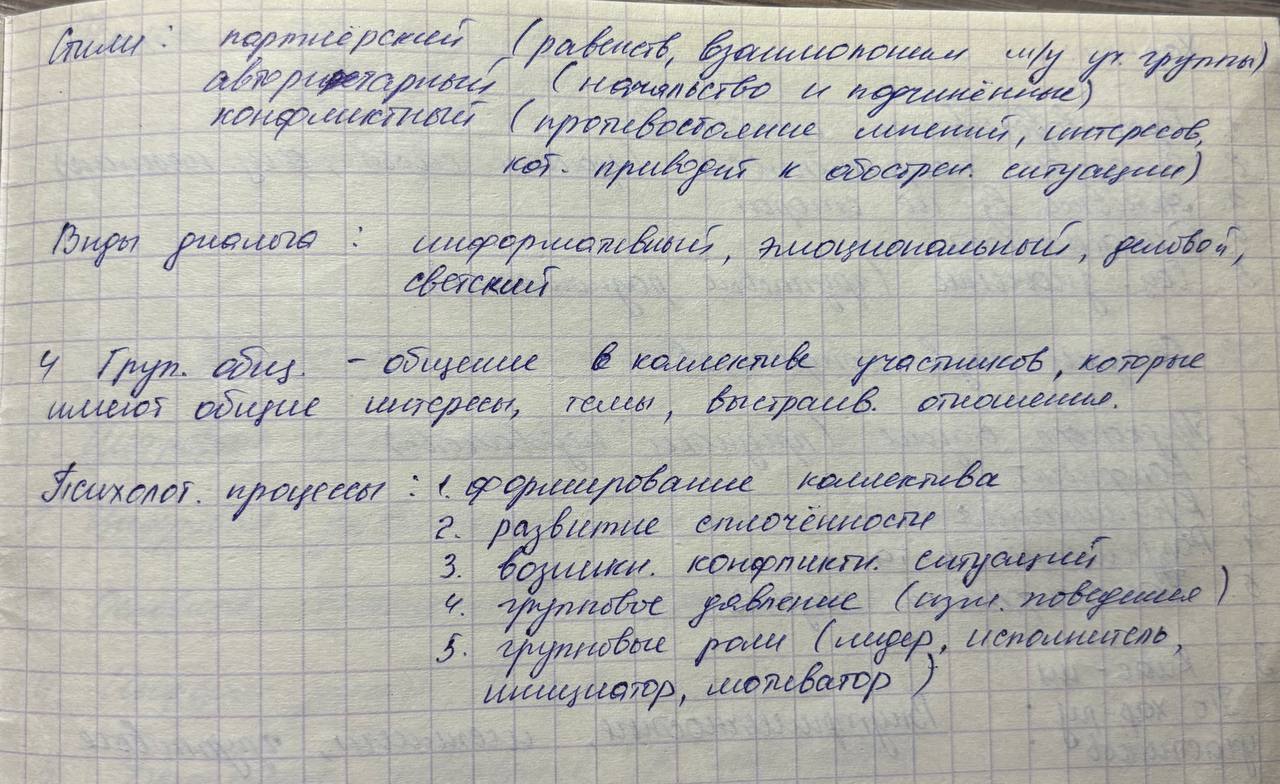 Стили: партнёрский (равенств, взаимопоним м/у уч. группы)
авторитарный (начальство и подчинённые)
конфликтный (противостояние мнений, интересов,
кот. приводит к обострен. ситуации)
Виды диалога: информативный, эмоциональный, деловой,
светский
4 Груп. общ. - общение в коллективе участников, которые
имеют общие интересы, темы, выстраив. отношения.
Психолог. процессы: 1. формирование коллектива
2. развитие сплочённости
3. возникн. конфликтн. ситуаций
4. групповое давление (изм. поведения)
5. групповые роли (лидер, исполнитель,
инициатор, мотиватор)